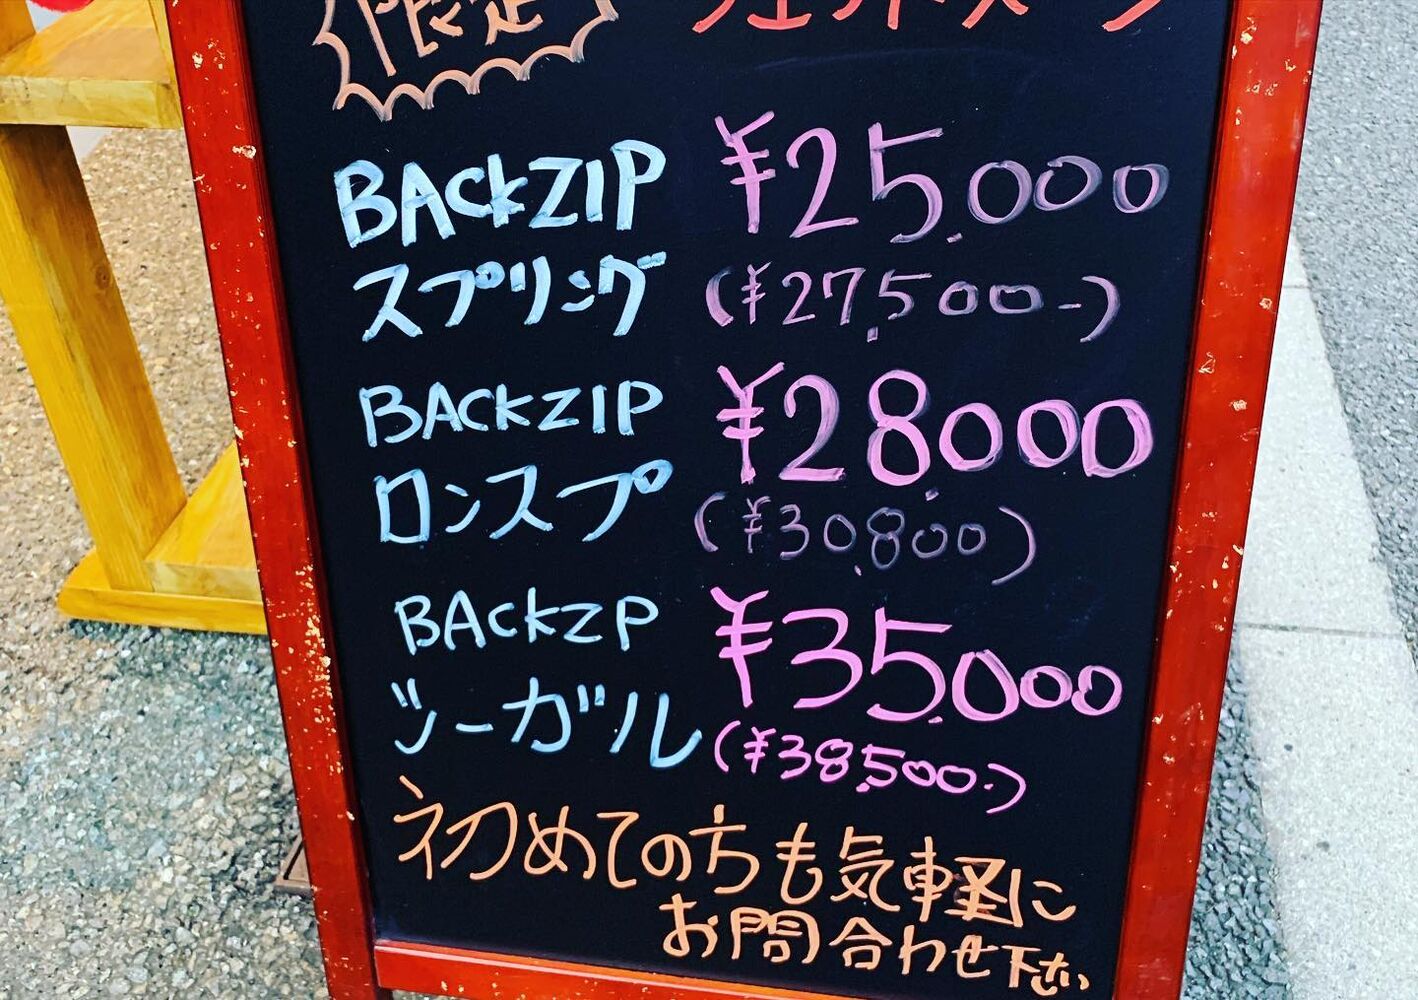 限定 ウェットスーツ
BACKZIP ¥25.000
スプリング (¥27.500-)
BACKZIP ¥28.000
ロンスプ (¥30.800)
BACKZIP ¥35.000
シーガル (¥38.500-)
初めての方も気軽に
お問合わせ下さい